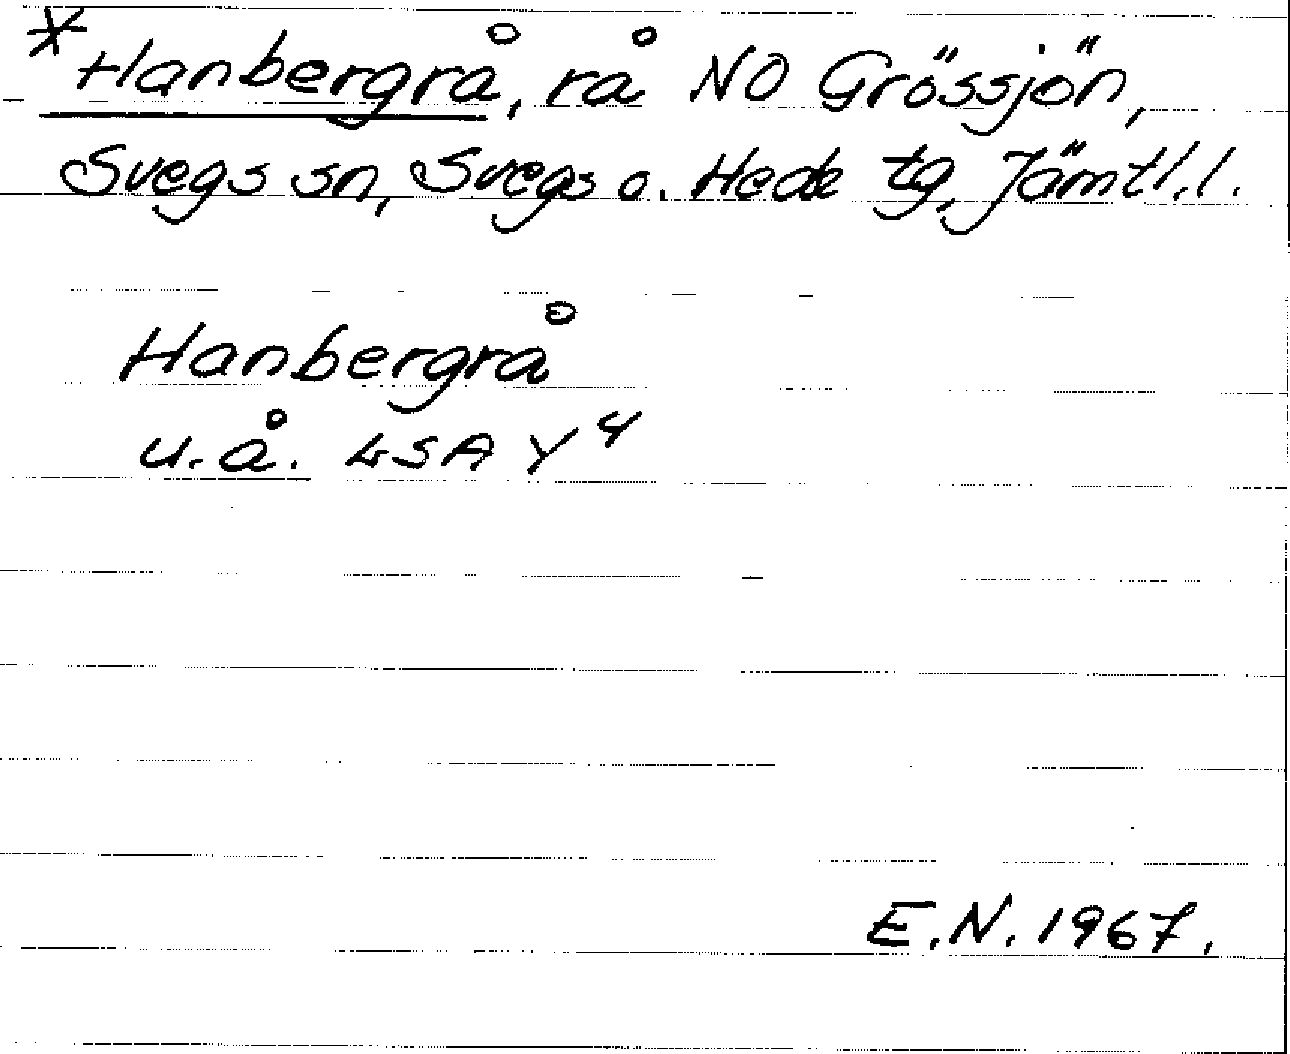 *Hanbergrå, rå NO Grössjön,
Svegs sn, Svegs o. Hede tg, Jämtl.l.
Hanbergrå
u.å. LSA Y4
E.N. 1967.